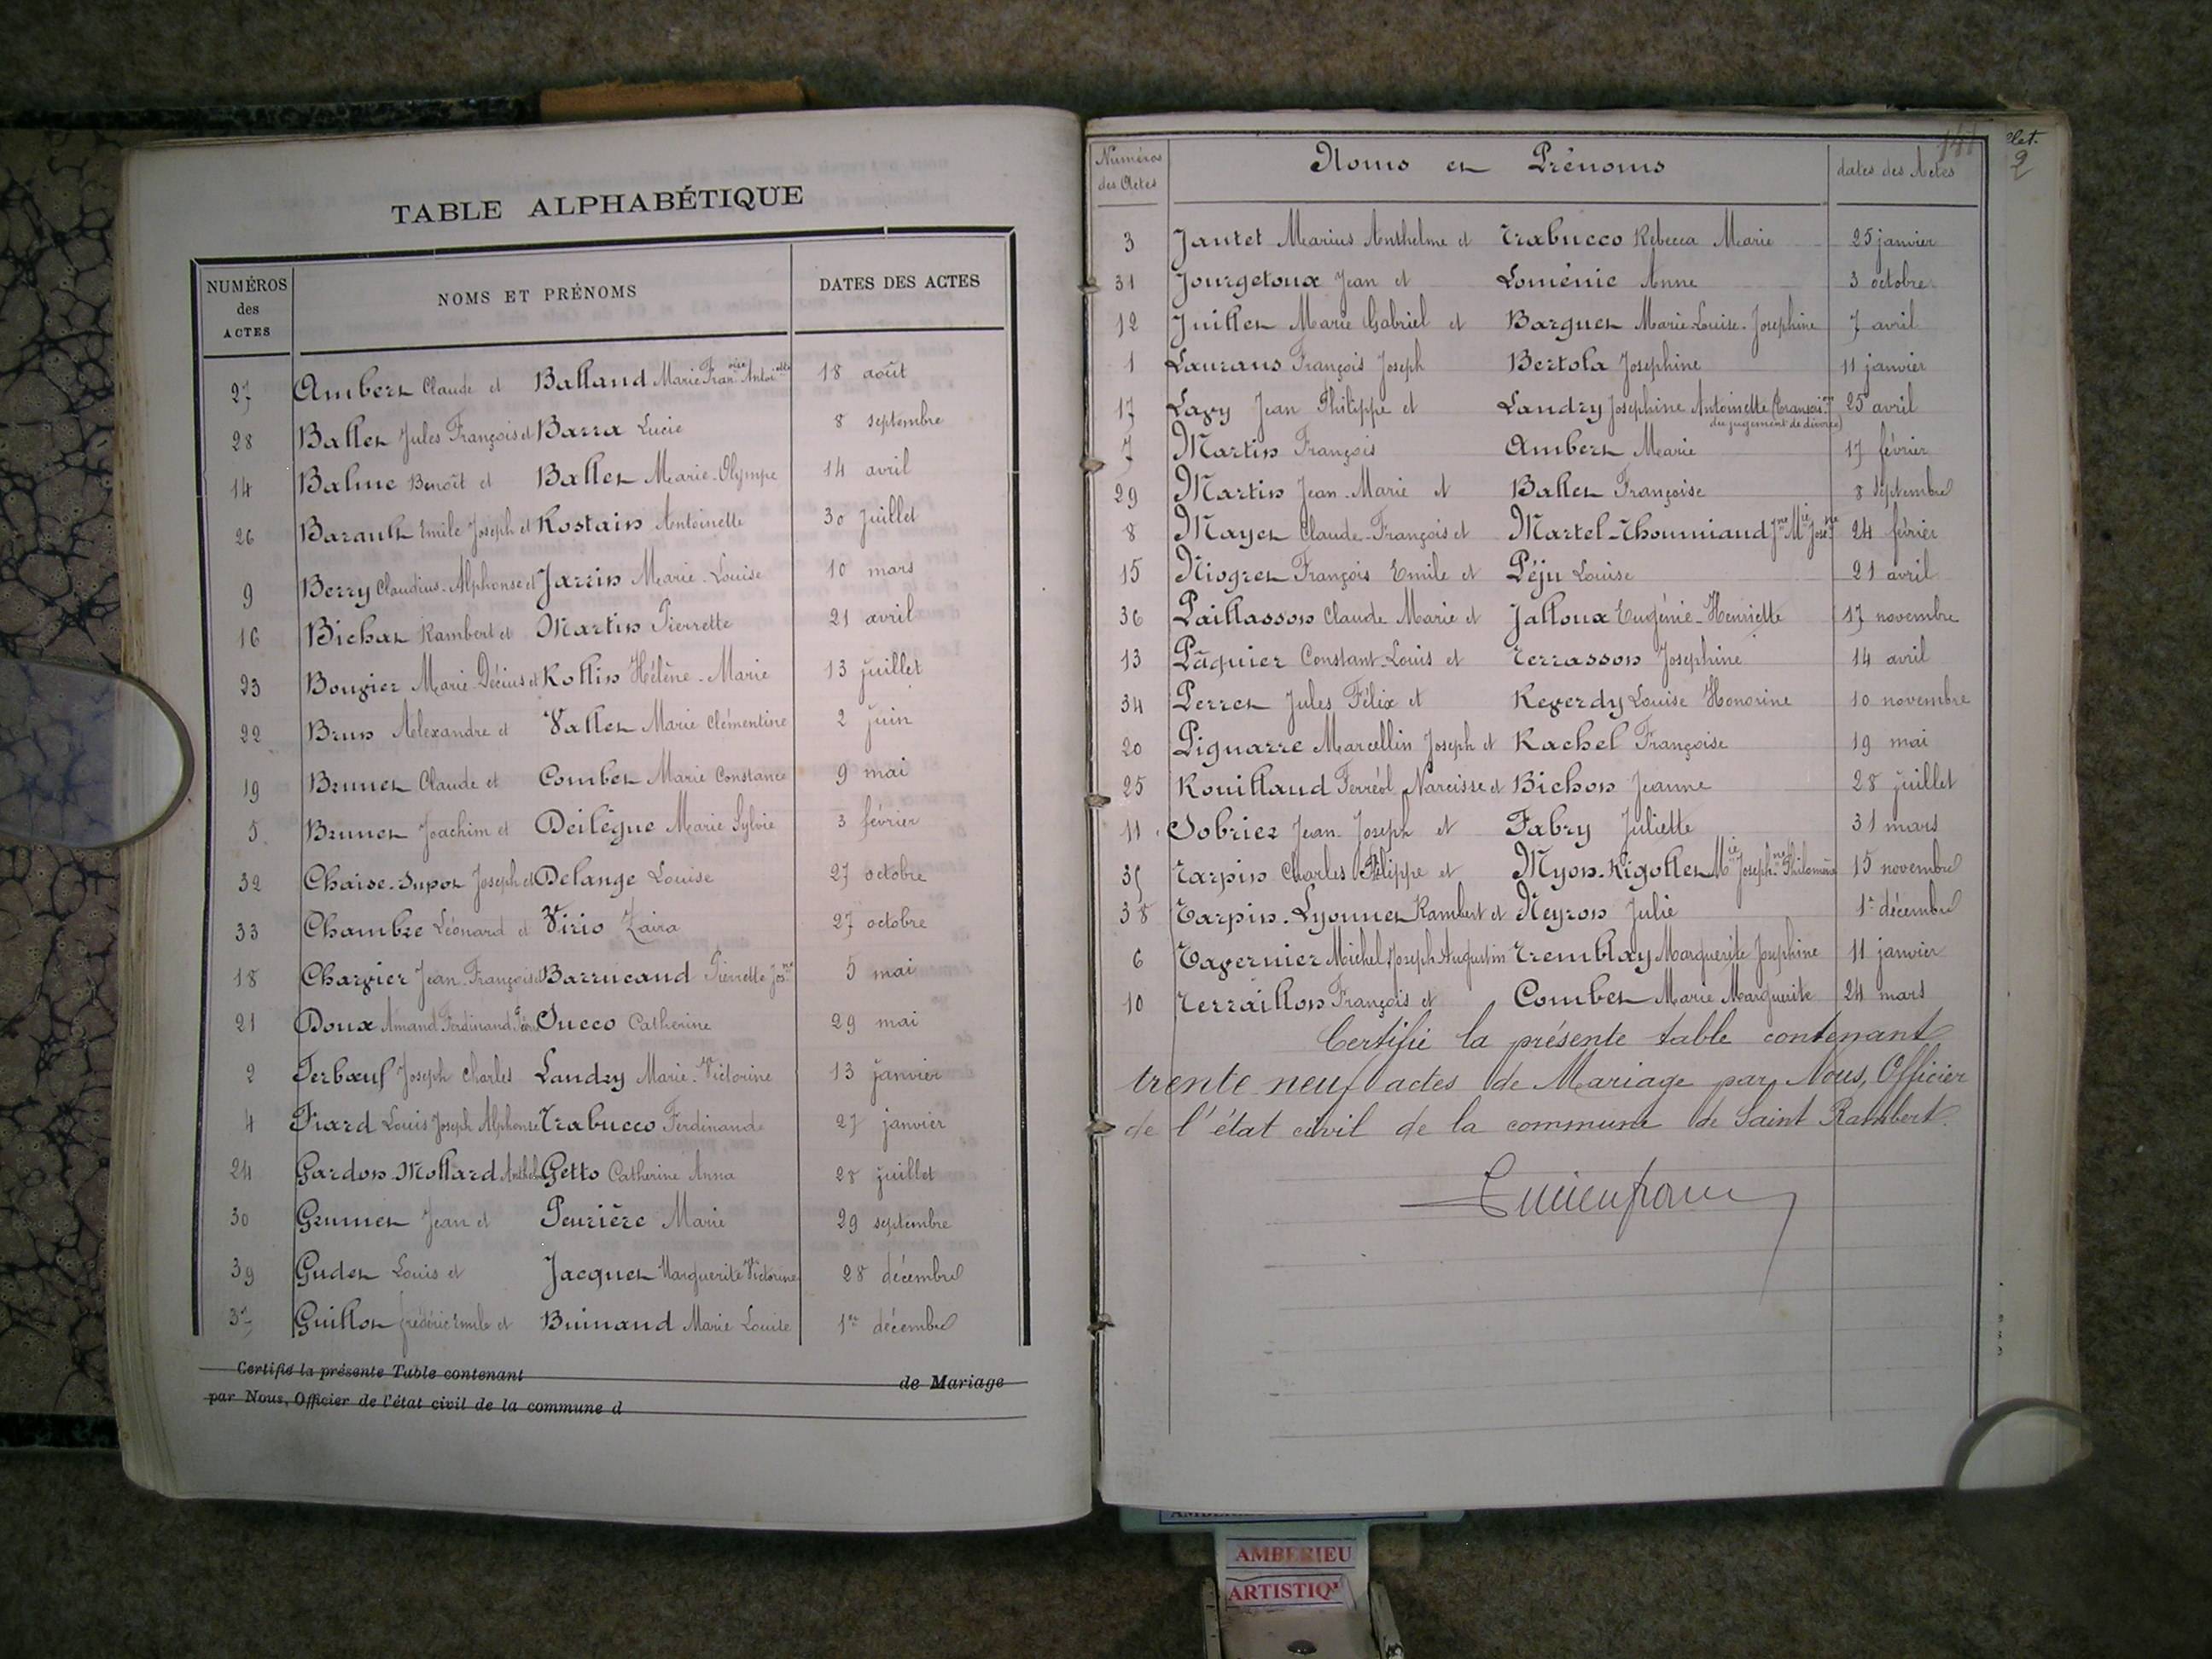 TABLE ALPHABÉTIQUE
NUMÉROS des ACTES NOMS ET PRÉNOMS DATES DES ACTES
27 Ambert Claude et Balland Marie Franoise Antoiette 18 août
28 Ballet Jules François et Barra Lucie 8 septembre
14 Balme Benoît et Ballet Marie-Olympe 14 avril
26 Barault Emile Joseph et Rostain Antoinette 30 juillet
9 Berry Claudius-Alphonse et Jarrin Marie-Louise 10 mars
16 Bichat Rambert et Martin Pierrette 21 avril
23 Bouvier Marie Décius et Rollin Hélène-Marie 13 juillet
22 Brun Alexandre et Vallet Marie Clémentine 2 juin
19 Brunet Claude et Combet Marie Constance 9 mai
5 Brunet Joachim et Deilègue Marie Sylvie 3 février
32 Chaise-Dupot Joseph et Delange Louise 27 octobre
33 Chambre Léonard et Virio Zaira 27 octobre
18 Charvier Jean-François et Barrucand Pierrette Josne 5 mai
21 Doux Amand Ferdinand Succo Catherine 29 mai
2 Ferbœuf Joseph Charles Landry Marie-Victorine 13 janvier
4 Frard Louis Joseph Alphonse Trabucco Ferdinande 27 janvier
24 Gardon-Mollard Anthel Getto Catherine Anna 28 juillet
30 Grumet Jean et Peurière Marie 29 septembre
39 Gudet Louis et Jacquet Marguerite Victorine 28 décembre
37 Guillot frédéric Emile et Buinand Marie Louise 1er décembre
Certifié la présente Table contenant de Mariage
par Nous, Officier de l'état civil de la commune d
141 clet. 2
Numéros des Actes Noms et Prénoms dates des Actes
3 Jantet Marius Anthelme et Trabucco Rebecca Marie 25 janvier
31 Jourgetoux Jean et Loménie Anne 3 octobre
12 Juillet Marie Gabriel et Barguet Marie-Louise-Josephine 7 avril
1 Laurans François Joseph Bertola Josephine 11 janvier
17 Lavy Jean Philippe et Landry Josephine Antoinette (Transcion 25 avril
du jugement de divorce)
7 Martin François Ambert Marie 17 février
29 Martin Jean-Marie et Ballet Françoise 8 septembre
8 Mayet Claude-François et Martel-Thoumiand Jne Mie Josne 24 février
15 Niogret François Emile et Péju Louise 21 avril
36 Paillasson Claude Marie et Jalloux Eugénie-Henriette 17 novembre
13 Pâquier Constant-Louis et Terrasson Josephine 14 avril
34 Perret Jules Félix et Reverdy Louise Honorine 10 novembre
20 Pignarre Marcellin Joseph et Rachel Françoise 19 mai
25 Rouilland Ferréol Narcisse et Bichon Jeanne 28 juillet
11 Sobrier Jean-Joseph et Fabry Juliette 31 mars
35 Tarpin Charles Philippe et Myon-Rigollet Mie Josephne Philomène 15 novembre
38 Tarpin-Lyonnet Rambert et Neyron Julie 1er décembre
6 Tavernier Michel Joseph Augustin Tremblay Marguerite Josephine 11 janvier
10 Terraillon François et Combet Marie Marguerite 24 mars
Certifié la présente table contenant
trente-neuf actes de Mariage par Nous, Officier
de l'état civil de la commune de Saint Rambert.
AMBERIEU
ARTISTIQ